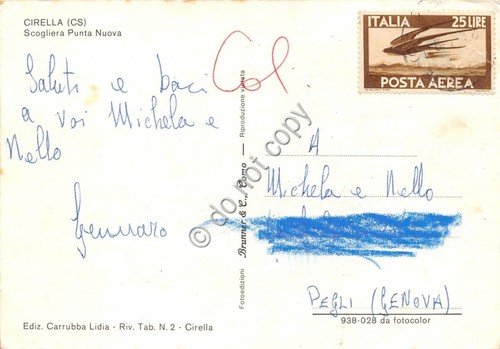 CIRELLA (CS)
Scogliera Punta Nuova
Saluti e baci
a voi Michela e
Nello
Gennaro
Ediz. Carrubba Lidia - Riv. Tab. N. 2 - Cirella
Fotoedizioni Brunner & C., Como - Riproduzione vietata
© do not copy
ITALIA 25 LIRE
POSTA AEREA
A
Michela e Nello
PEGLI (GENOVA)
938-028 da fotocolor